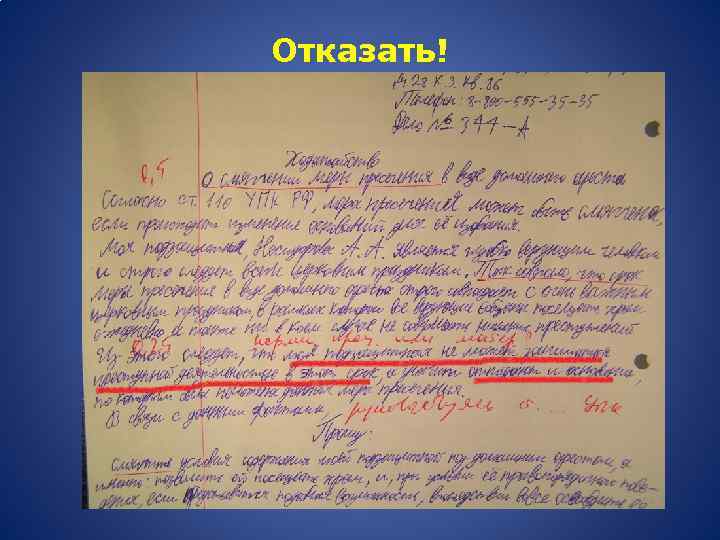 Отказать!
д. 28 к. 3. кв. 86
Телефон: 8-800-555-35-35
Дело № 344-А
Ходатайство
0,5 О смягчении меры пресечения в виде домашнего ареста
Согласно ст. 110 УПК РФ, мера пресечения может быть смягчена,
если происходит изменение оснований для её избрания.
Моя подзащитная, Несидорова А. А. является глубо верующим человеком
и строго следует всем церковным праздникам. Так совпало, что срок
меры пресечения в виде домашнего ареста строго совпадает с
церковным праздником, в рамках которого все верующие обязаны посещать храм
ежедневно и поститься ни в коем случае не совершать никаких преступлений
0,25 норми, прац. или матер?
Из этого следует, что моя подзащитная не может заниматься
преступной деятельностью в этот срок, а значит отпадают и основания,
по которым была назначена данная мера пресечения.
В связи с данными фактами, руководствуясь ст.... УПК
Прошу:
смягчить условия содержания моей подзащитной под домашним арестом, а
именно: позволить ей посещать храм, и, при условии её правопорядочного пове-